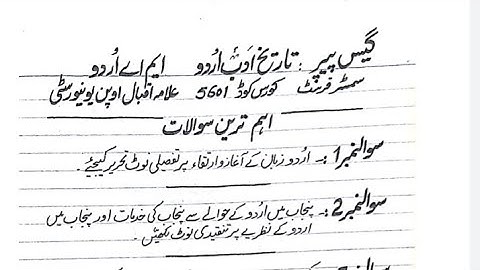 گیس پیپر : تاریخ ادب اُردو ایم اے اُردو
سمسٹر فرسٹ کورس کوڈ 5601 علامہ اقبال اوپن یونیورسٹی
اہم ترین سوالات
سوال نمبر 1 :۔ اُردو زبان کے آغاز و ارتقاء پر تفصیلی نوٹ تحریر کیجیئے۔
سوال نمبر 2 :۔ پنجاب میں اُردو کے حوالے سے پنجاب کی خدمات اور پنجاب میں
اردو کے نظریے پر تنقیدی نوٹ لکھیں۔